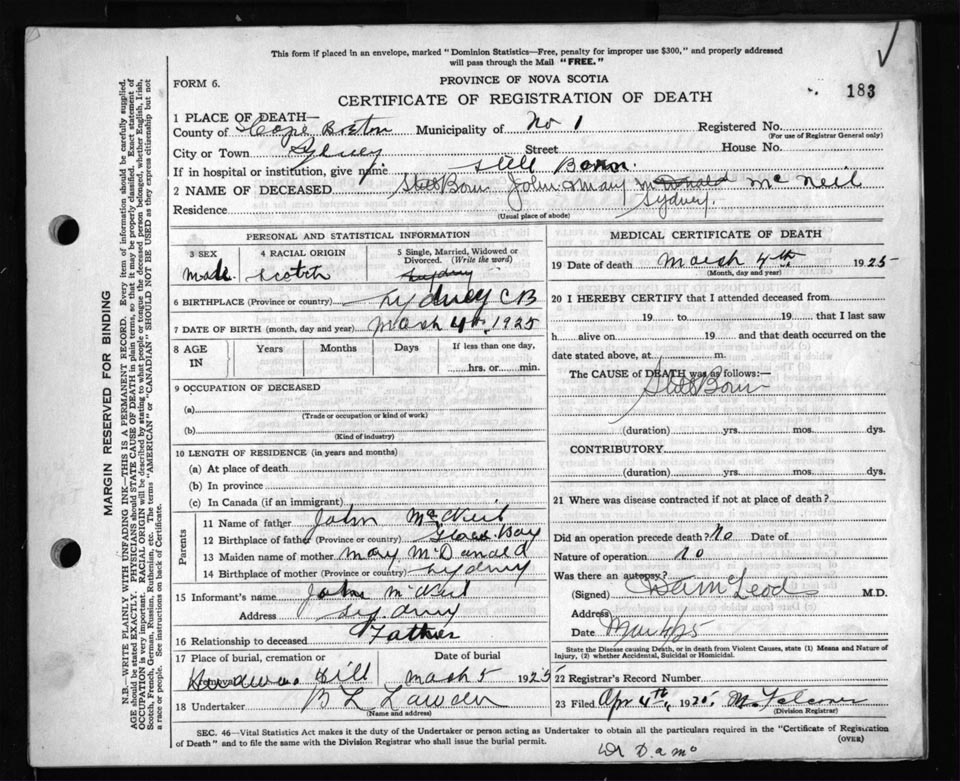 This form if placed in an envelope, marked "Dominion Statistics—Free, penalty for improper use $300," and properly addressed
will pass through the Mail "FREE."
FORM 6.
PROVINCE OF NOVA SCOTIA
183
CERTIFICATE OF REGISTRATION OF DEATH
1 PLACE OF DEATH—
County of Cape Breton Municipality of No 1 Registered No.
(For use of Registrar General only)
City or Town Sydney Street House No.
If in hospital or institution, give name Still Born.
2 NAME OF DECEASED Still Born John & Mary McDonald Mc Neil
Residence Sydney.
(Usual place of abode)
PERSONAL AND STATISTICAL INFORMATION
3 SEX 4 RACIAL ORIGIN 5 Single, Married, Widowed or
Divorced. (Write the word)
Male Scotch Sydney
6 BIRTHPLACE (Province or country) Sydney C B
7 DATE OF BIRTH (month, day and year) March 4th, 1925
8 AGE IN Years Months Days If less than one day,
hrs. or min.
9 OCCUPATION OF DECEASED
(a)
(Trade or occupation or kind of work)
(b)
(Kind of industry)
10 LENGTH OF RESIDENCE (in years and months)
(a) At place of death
(b) In province
(c) In Canada (if an immigrant)
Parents
11 Name of father John McNeil
12 Birthplace of father (Province or country) Glace Bay
13 Maiden name of mother Mary McDonald
14 Birthplace of mother (Province or country) Sydney
15 Informant's name John McNeil
Address Sydney
16 Relationship to deceased Father
17 Place of burial, cremation or Date of burial
Hill March 5 1925
18 Undertaker B L
(Name and address)
MEDICAL CERTIFICATE OF DEATH
19 Date of death March 4th 1925
(Month, day and year)
20 I HEREBY CERTIFY that I attended deceased from
19 to 19 that I last saw
h alive on 19 and that death occurred on the
date stated above, at m.
The CAUSE of DEATH was as follows:—
Still Born
(duration) yrs. mos. dys.
CONTRIBUTORY.
(duration) yrs. mos. dys.
21 Where was disease contracted if not at place of death?
Did an operation precede death? No Date of
Nature of operation No
Was there an autopsy?
(Signed) Dan McLeod M.D.
Address
Date
State the Disease causing Death, or in death from Violent Causes, state (1) Means and Nature of
Injury, (2) whether Accidental, Suicidal or Homicidal.
22 Registrar's Record Number
23 Filed Apr 4th, 1925.
(Division Registrar)
SEC. 46—Vital Statistics Act makes it the duty of the Undertaker or person acting as Undertaker to obtain all the particulars required in the "Certificate of Registration
of Death" and to file the same with the Division Registrar who shall issue the burial permit.
(OVER)
MARGIN RESERVED FOR BINDING
N.B.—WRITE PLAINLY WITH UNFADING INK—THIS IS A PERMANENT RECORD. Every item of information should be carefully supplied.
AGE should be stated EXACTLY. PHYSICIANS should STATE CAUSE OF DEATH in plain terms, so that it may be properly classified. Exact statement of
OCCUPATION is very important. RACIAL ORIGIN will be described by stating to what people or tongue the deceased person belonged, whether English, Irish,
Scotch, French, German, Russian, Ruthenian, etc. The terms "AMERICAN" or "CANADIAN" SHOULD NOT BE USED as they express citizenship but not
a race or people. See instructions on back of Certificate.